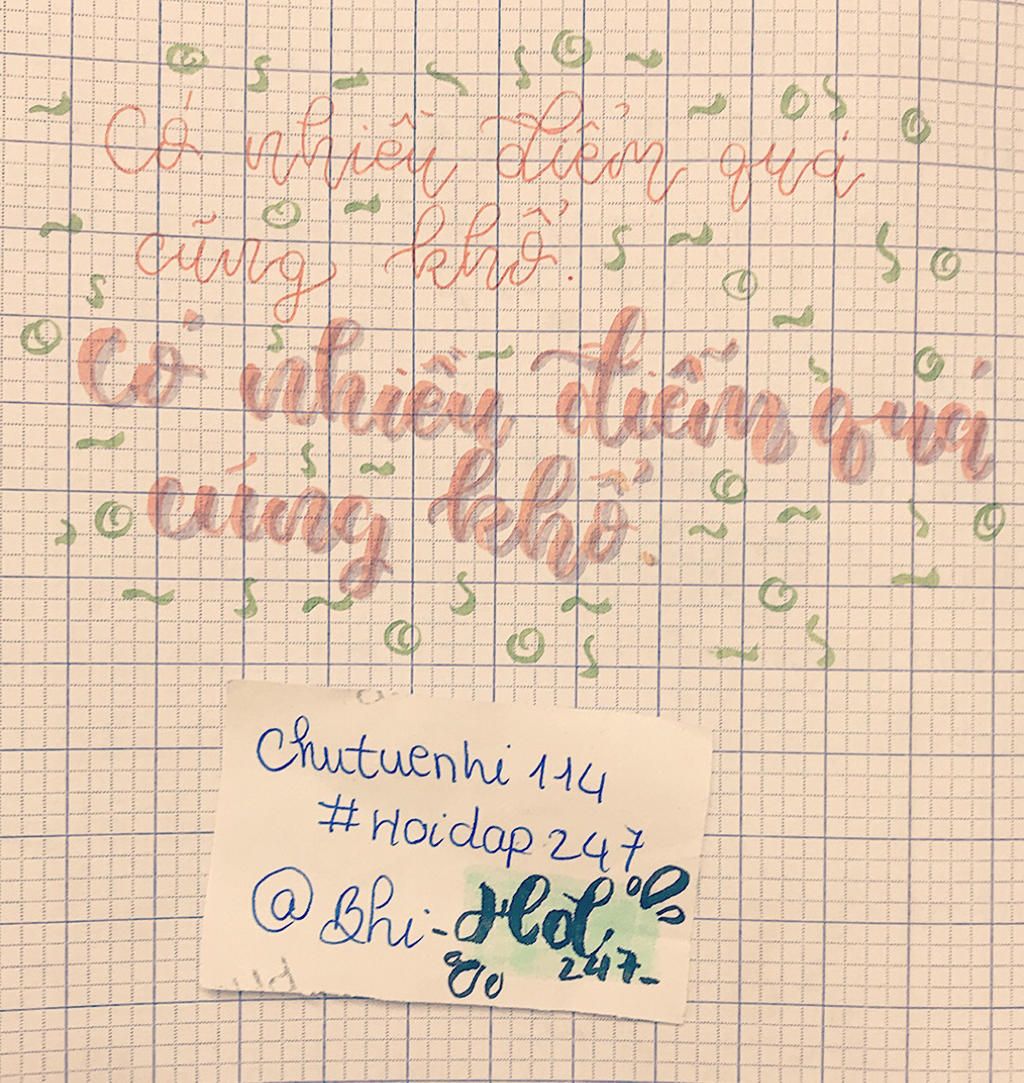 Có nhiều điểm quá
cũng khổ.
Có nhiều điểm quá
cũng khổ.
Chutuenhi 114
#Hoidap 247
@Bhi-Hỏi
247-